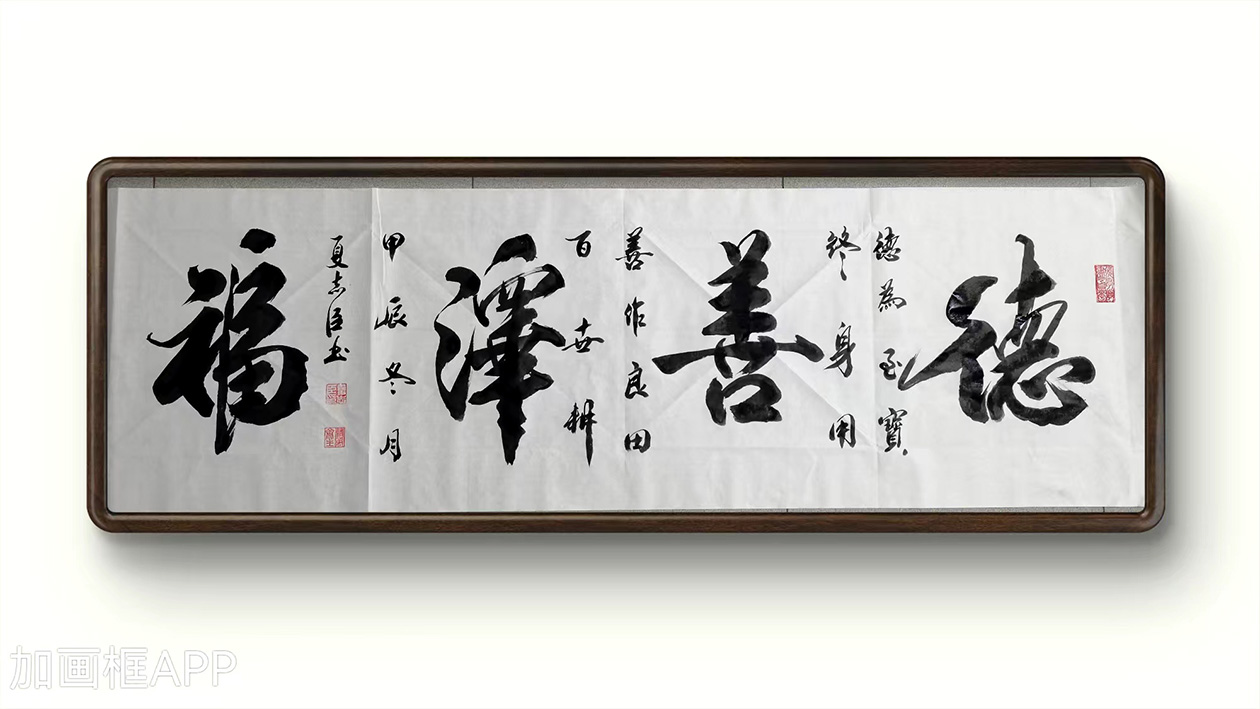 德
德為至寶
終身用
善
善作良田
百世耕
澤
甲辰冬月
夏志臣书
福
加画框APP